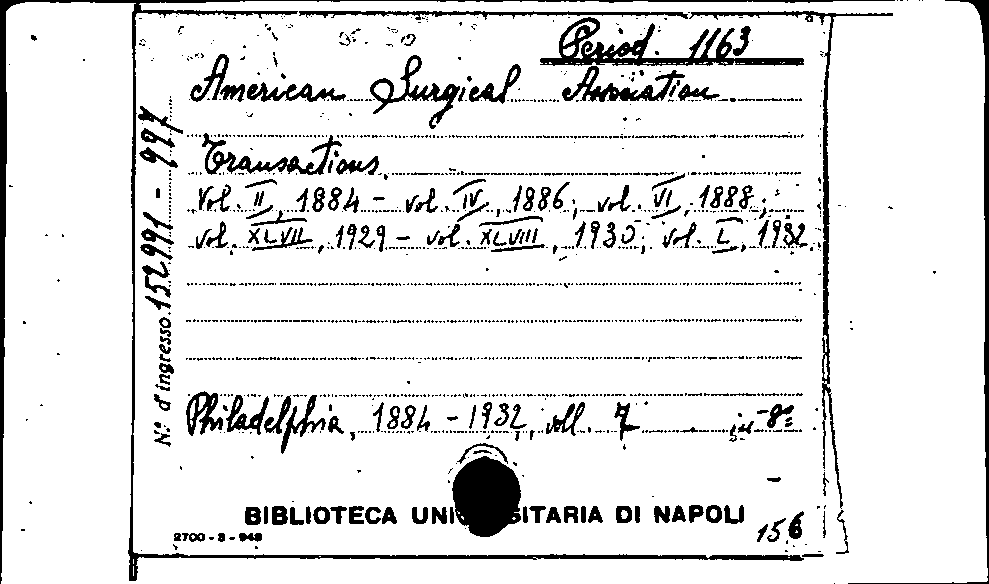 Period. 1163
American Surgical Association.
Transactions.
vol. II, 1884 - vol. IV, 1886; vol. VI, 1888;
vol. XLVII, 1929 - vol. XLVIII, 1930; vol. L, 1932.
Philadelphia, 1884 - 1932, voll. 7 in-8º
N.º d'ingresso 152991 - 997
BIBLIOTECA UNIVERSITARIA DI NAPOLI
2700 - 3 - 948
156